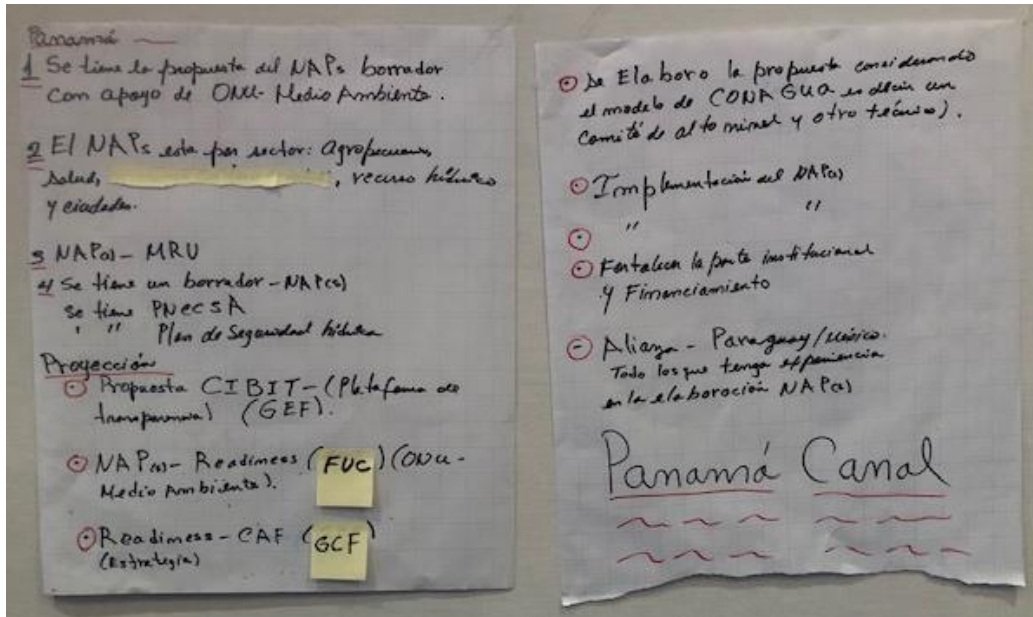 Panamá
1 Se tiene la propuesta del NAPs borrador
con apoyo de ONU-Medio Ambiente.
2 El NAPs esta por sector: agropecuario,
Salud, , recurso hídrico
y ciudades.
3 NAP(s) - MRU
4 Se tiene un borrador - NAP(s)
se tiene PNCCSA
" " Plan de Seguridad hídrica
Proyección
Propuesta CIBIT - (Plataforma de
transparencia) (GEF).
NAP(s) - Readiness (FUC) (ONU-
Medio Ambiente).
Readiness - CAF (GCF)
(Estrategia)
Se Elaboro la propuesta considerando
el modelo de CONAGUA es decir un
Comité de alto nivel y otro técnico).
Implementación del NAP(s)
" "
Fortalecer la parte institucional
y Financiamiento
Alianza - Paraguay/México.
Todo los que tenga experiencia
en la elaboración NAP(s)
Panamá Canal